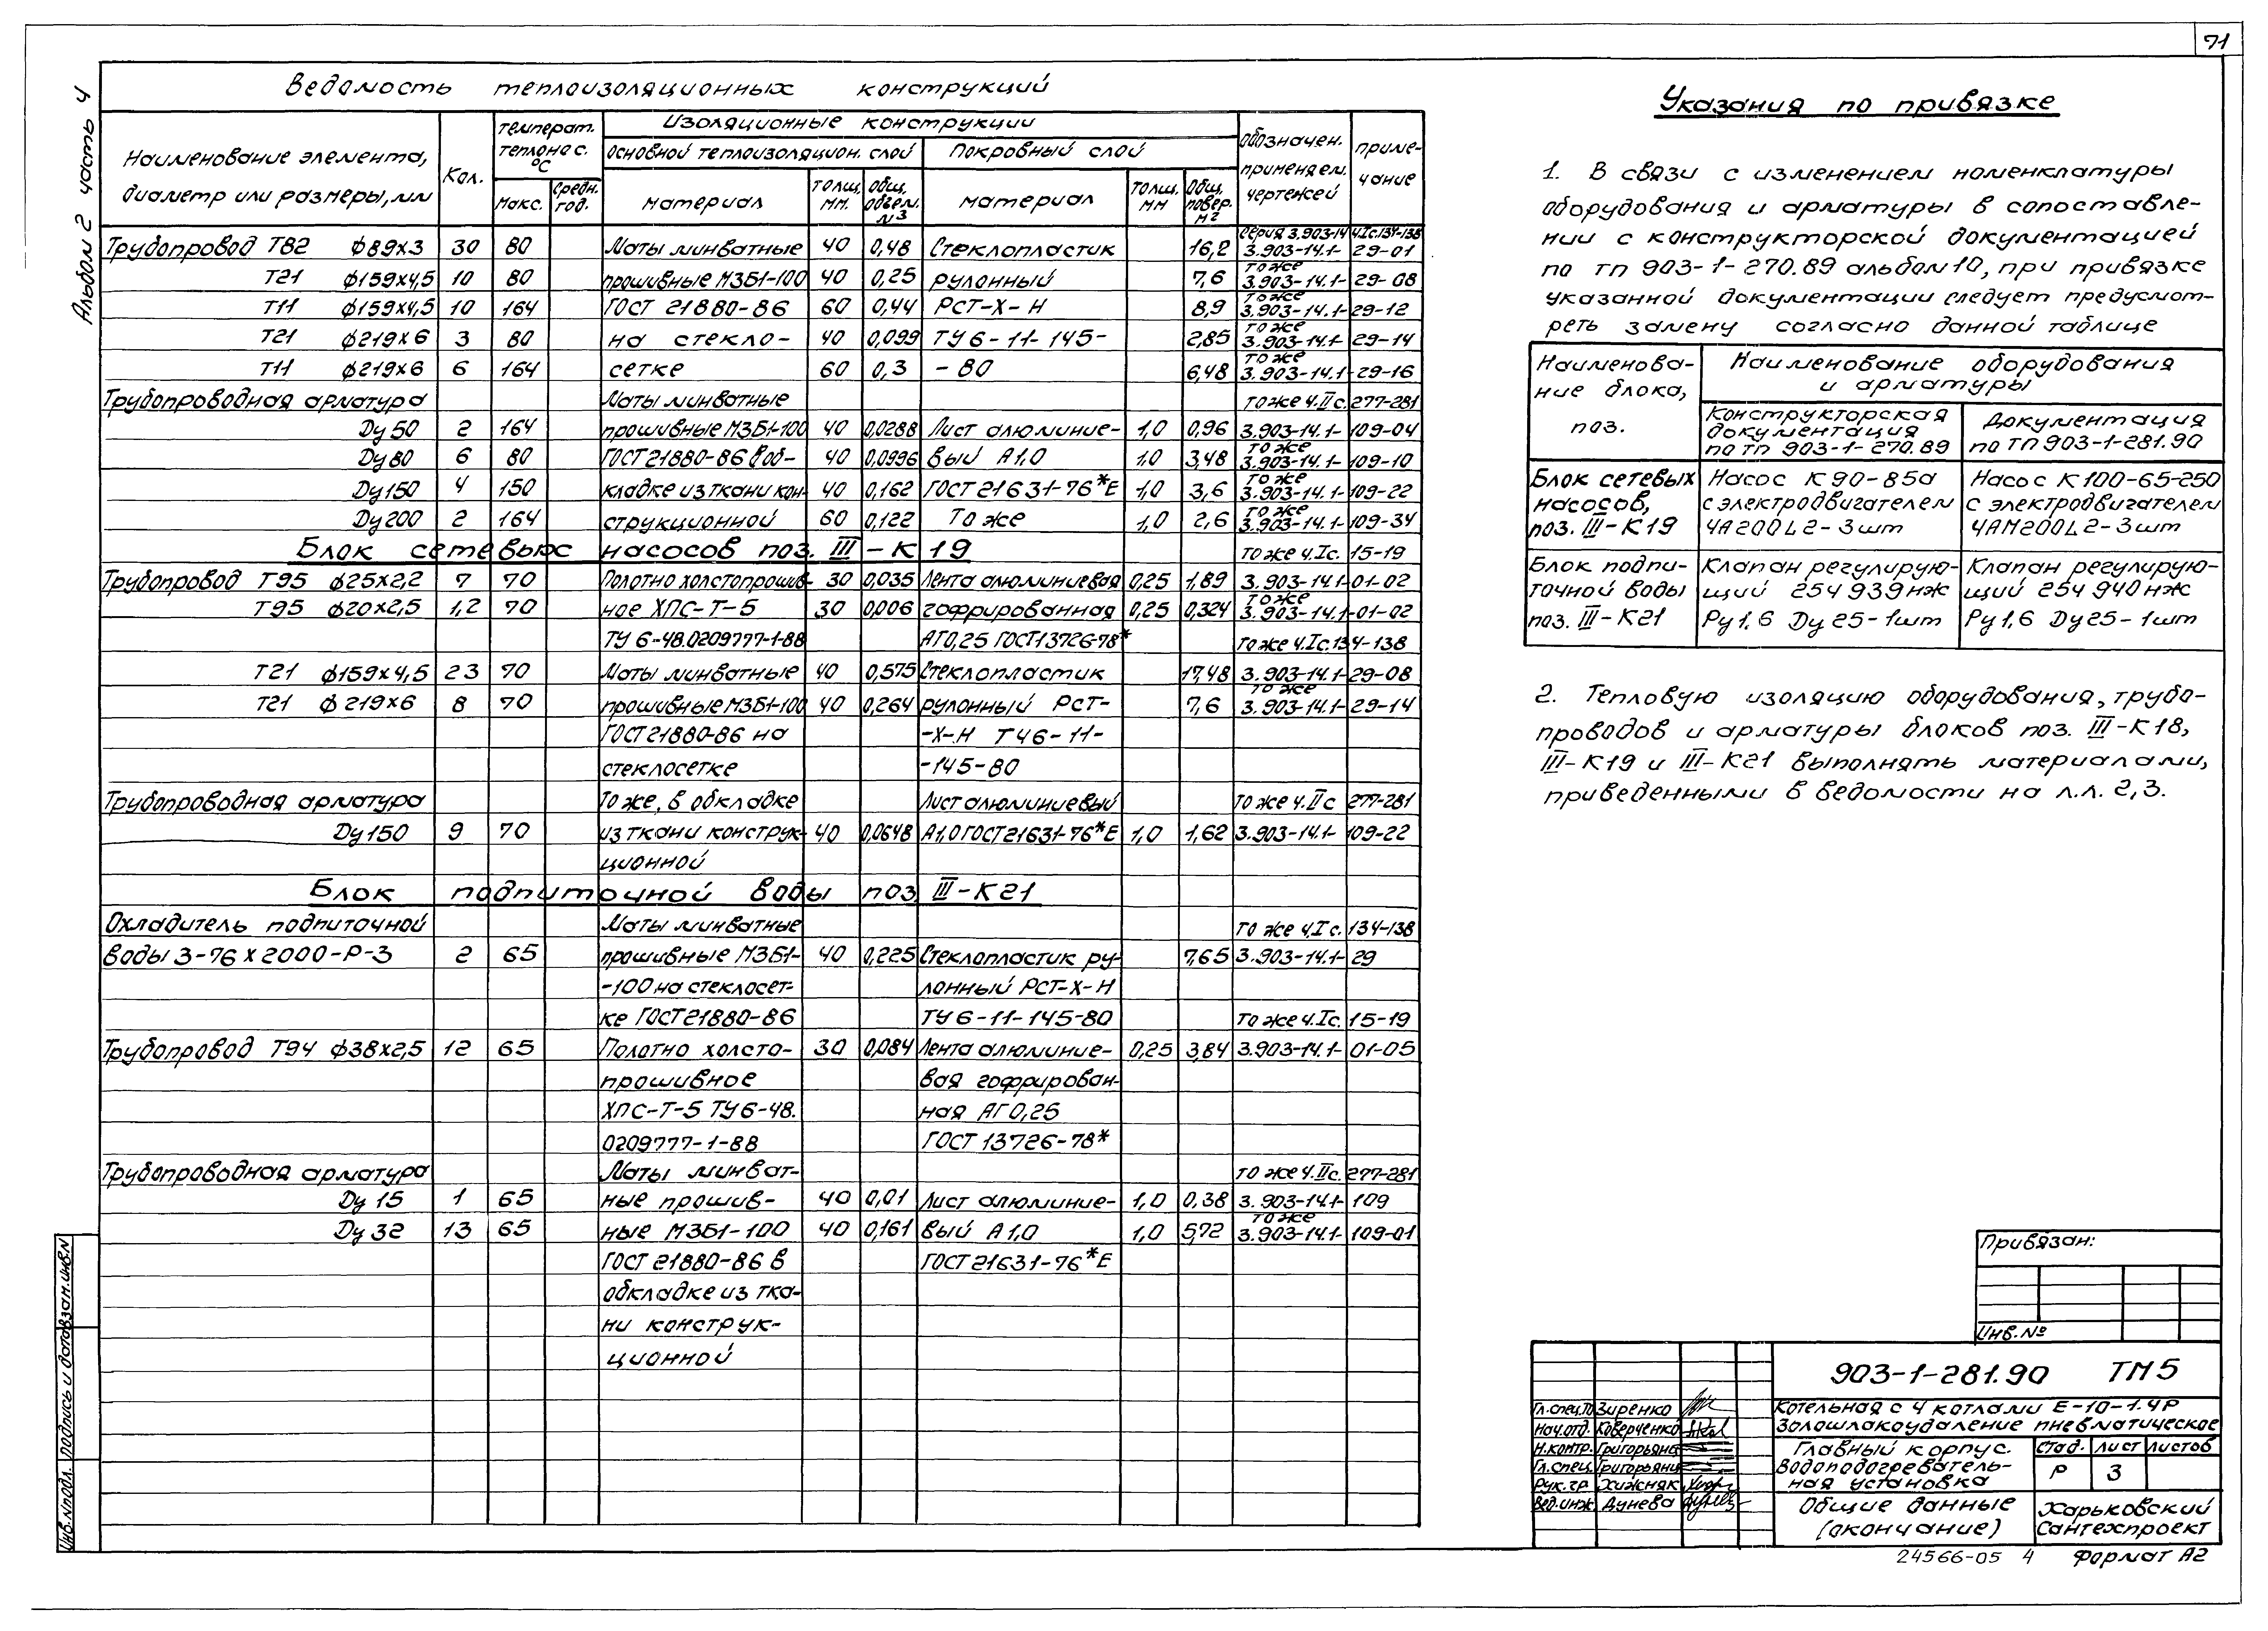 71
Альбом 2 часть 4
Ведомость теплоизоляционных конструкций
Наименование элемента, диаметр или размеры, мм
Кол.
температ. теплонос. °С
макс.
средн. год.
Изоляционные конструкции
Основной теплоизоляцион. слой
Покровный слой
материал
толщ. мм.
общ. объем. м3
материал
толщ. мм
общ. повер. м2
обозначен. применяем. чертежей
приме-чание
Серия 3.903-14 ч.Iс.134-138
Трубопровод Т82 ф89х3 30 80 Маты минватные 40 0,48 Стеклопластик 16,2 3.903-14.1- 29-01
то же
Т21 ф159х4,5 10 80 прошивные М3Б1-100 40 0,25 рулонный 7,6 3.903-14.1- 29-08
то же
Т11 ф159х4,5 10 164 ГОСТ 21880-86 60 0,44 РСТ-Х-Н 8,9 3.903-14.1- 29-12
то же
Т21 ф219х6 3 80 на стекло- 40 0,099 ТУ 6-11-145- 2,85 3.903-14.1- 29-14
то же
Т11 ф219х6 6 164 сетке 60 0,3 -80 6,48 3.903-14.1- 29-16
Трубопроводная арматура Маты минватные то же ч.IIс. 277-281
Ду 50 2 164 прошивные М3Б1-100 40 0,0288 Лист алюминие- 1,0 0,96 3.903-14.1- 109-04
то же
Ду 80 6 80 ГОСТ 21880-86 в об- 40 0,0996 вый А1.0 1,0 3,48 3.903-14.1- 109-10
то же
Ду 150 4 150 кладке из ткани кон- 40 0,162 ГОСТ 21631-76*Е 1,0 3,6 3.903-14.1- 109-22
то же
Ду 200 2 164 струкционной 60 0,122 То же 1,0 2,6 3.903-14.1- 109-34
Блок сетевых насосов поз. III-К19 то же ч.Iс. 15-19
Трубопровод Т95 ф25х2,2 7 70 Полотно холстопрошив- 30 0,035 Лента алюминиевая 0,25 1,89 3.903-14.1- 01-02
то же
Т95 ф20х2,5 1,2 70 ное ХПС-Т-5 30 0,006 гофрированная 0,25 0,324 3.903-14.1- 01-02
ТУ 6-48.0209777-1-88 АГ0,25 ГОСТ13726-78* то же ч.Iс. 134-138
Т21 ф159х4,5 23 70 Маты минватные 40 0,575 Стеклопластик 17,48 3.903-14.1- 29-08
то же
Т21 ф219х6 8 70 прошивные М3Б1-100 40 0,264 рулонный РСТ- 7,6 3.903-14.1- 29-14
ГОСТ 21880-86 на -Х-Н ТУ6-11-
стеклосетке -145-80
Трубопроводная арматура То же, в обкладке Лист алюминиевый то же ч.IIс 277-281
Ду 150 9 70 из ткани конструк- 40 0,0648 А1,0 ГОСТ 21631-76*Е 1,0 1,62 3.903-14.1- 109-22
ционной
Блок подпиточной воды поз. III-К21
Охладитель подпиточной Маты минватные то же ч.Iс. 134-138
воды 3-76х2000-Р-3 2 65 прошивные М3Б1- 40 0,225 Стеклопластик ру- 7,65 3.903-14.1- 29
-100 на стеклосет- лонный РСТ-Х-Н
ке ГОСТ 21880-86 ТУ 6-11-145-80 то же ч.Iс. 15-19
Трубопровод Т94 ф38х2,5 12 65 Полотно холсто- 30 0,084 Лента алюминие- 0,25 3,84 3.903-14.1- 01-05
прошивное вая гофрирован-
ХПС-Т-5 ТУ 6-48. ная АГ0,25
0209777-1-88 ГОСТ 13726-78*
Трубопроводная арматура Маты минват- то же ч.IIс. 277-281
Ду 15 1 65 ные прошив- 40 0,01 Лист алюминие- 1,0 0,38 3.903-14.1- 109
то же
Ду 32 13 65 ные М3Б1-100 40 0,161 вый А1,0 1,0 5,72 3.903-14.1- 109-01
ГОСТ 21880-86 в ГОСТ 21631-76*Е
обкладке из тка-
ни конструк-
ционной
Указания по привязке
1. В связи с изменением номенклатуры
оборудования и арматуры в сопоставле-
нии с конструкторской документацией
по ТП 903-1-270.89 альбом 10, при привязке
указанной документации следует предусмот-
реть замену согласно данной таблице
Наименова-ние блока, поз.
Наименование оборудования и арматуры
Конструкторская документация по ТП 903-1-270.89
Документация по ТП 903-1-281.90
Блок сетевых Насос К 90-85а Насос К100-65-250
насосов, с электродвигателем с электродвигателем
поз. III-К19 4А200L2-3шт 4АМ200L2-3шт
Блок подпи- Клапан регулирую- Клапан регулирую-
точной воды щий 25ч 939нж щий 25ч 940нж
поз. III-К21 Ру1.6 Ду25-1шт Ру1,6 Ду25-1шт
2. Тепловую изоляцию оборудования, трубо-
проводов и арматуры блоков поз. III-К18,
III-К19 и III-К21 выполнять материалами,
приведенными в ведомости на л.л. 2,3.
Привязан:
Инв.№
903-1-281.90 ТМ5
Котельная с 4 котлами Е-10-1.4Р
Золошлакоудаление пневматическое
Гл.спец.ТО Зиренко
Нач.отд. Коверченко
Н.контр. Григорьянц
Гл.спец. Григорьянц
Рук.гр. Хижняк
Вед.инж Дунева
Главный корпус.
Водоподогреватель-
ная установка
Стад. Лист Листов
Р 3
Общие данные
(окончание)
Харьковский
Сантехпроект
24566-05 4 Формат А2
Инв.№подл. Подпись и дата Взам.инв.№